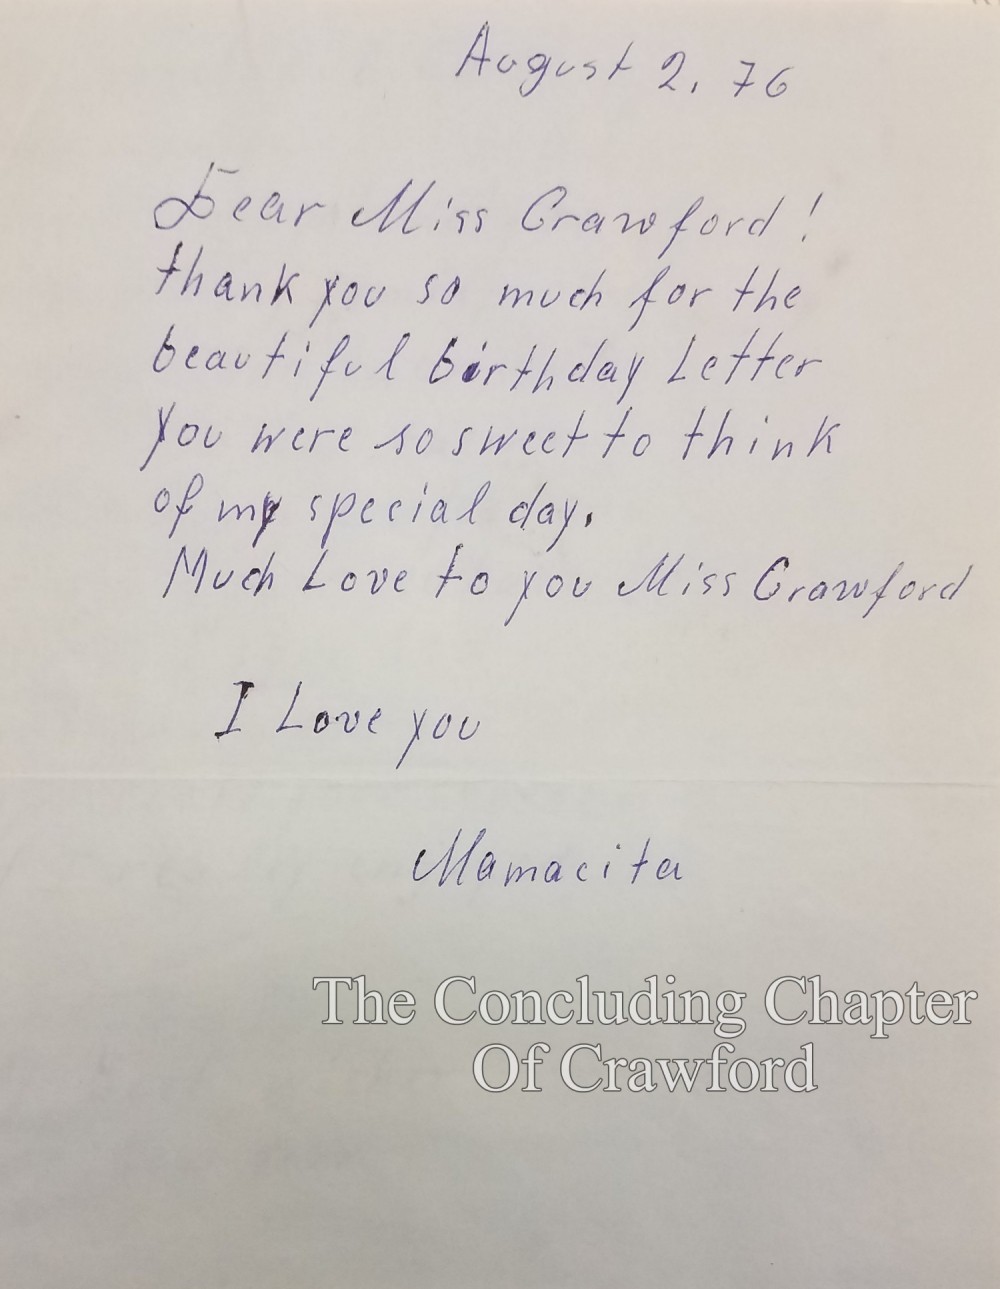 August 2, 76
Dear Miss Crawford!
thank you so much for the
beautiful birthday Letter
you were so sweet to think
of my special day.
Much Love to you Miss Crawford
I Love you
Mamacita
The Concluding Chapter
Of Crawford